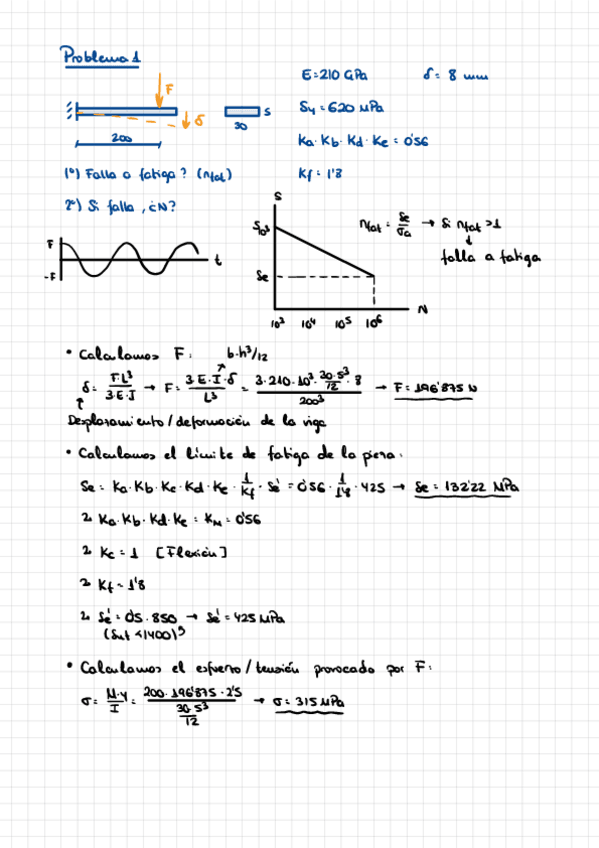 Problema 1
E=210 GPa δ= 8 mm
F
δ
5
30
200
Sy = 620 MPa
Ka·Kb·Kd·Ke = 0'56
Kf = 1'8
1º) Falla a fatiga? (ηfat)
2º) Si falla, ¿N?
F
-F
t
S
S10³
Se
N
10³ 10⁴ 10⁵ 10⁶
ηfat = Se/σa → Si ηfat >1
↓
falla a fatiga
• Calculamos F: b·h³/12
δ = F·L³/3·E·I → F = 3·E·I·δ/L³ = 3·210·10³·(30·5³/12)·8/200³ → F = 196'875 N
Desplazamiento/deformación de la viga
• Calculamos el límite de fatiga de la pieza:
Se = Ka·Kb·Kc·Kd·Ke·1/Kf·Se' = 0'56·1/1'8·425 → Se = 132'22 MPa
Ka·Kb·Kd·Ke = KM = 0'56
Kc = 1 [Flexión]
Kf = 1'8
Se' = 0'5·850 → Se' = 425 MPa
(Sut <1400)
• Calculamos el esfuerzo/tensión provocado por F:
σ = M·y/I = 200·196'875·2'5/(30·5³/12) → σ = 315 MPa